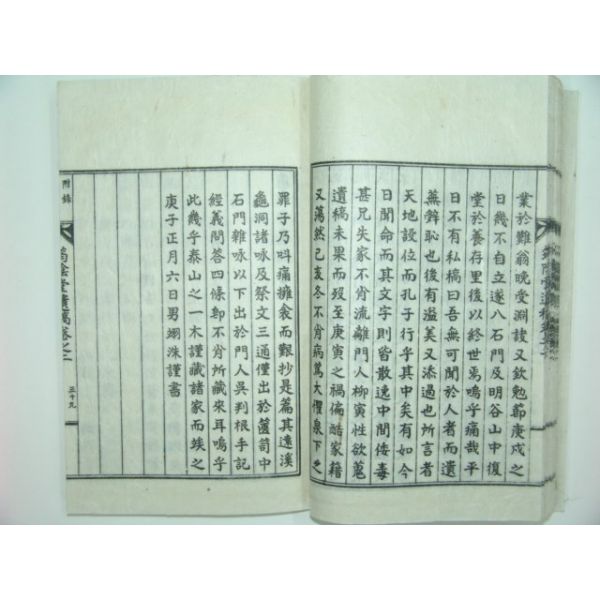 業於難翁晚堂淵諼又欽勉節庚戍之
日幾不自立遂八石門及明谷山中復
堂於養存里後以終世焉嗚乎痛哉平
日不有私稿曰吾無可聞於人者而遺
蕪辭恥也後有溢美又添過也所言者
天地設位而孔子行乎其中矣有如今
日聞命而其文字則皆散逸中間倭毒
甚兄失家不肖流離門人柳寅性欲蒐
遺稿未果而歿至庚寅之禍偏酷家籍
又蕩然己亥冬不肖病篤大懼泉下之
罪子乃叫痛擁衾而艱抄是篇其遠溪
龜洞諸咏及祭文三通僅出於蘆笥中
石門雜咏以下出於門人吳判根手記
經義問答四條卽不肖所藏來耳嗚乎
此幾乎泰山之一木謹藏諸家而竢之
庚子正月六日男翊洙謹書
附錄
三十九